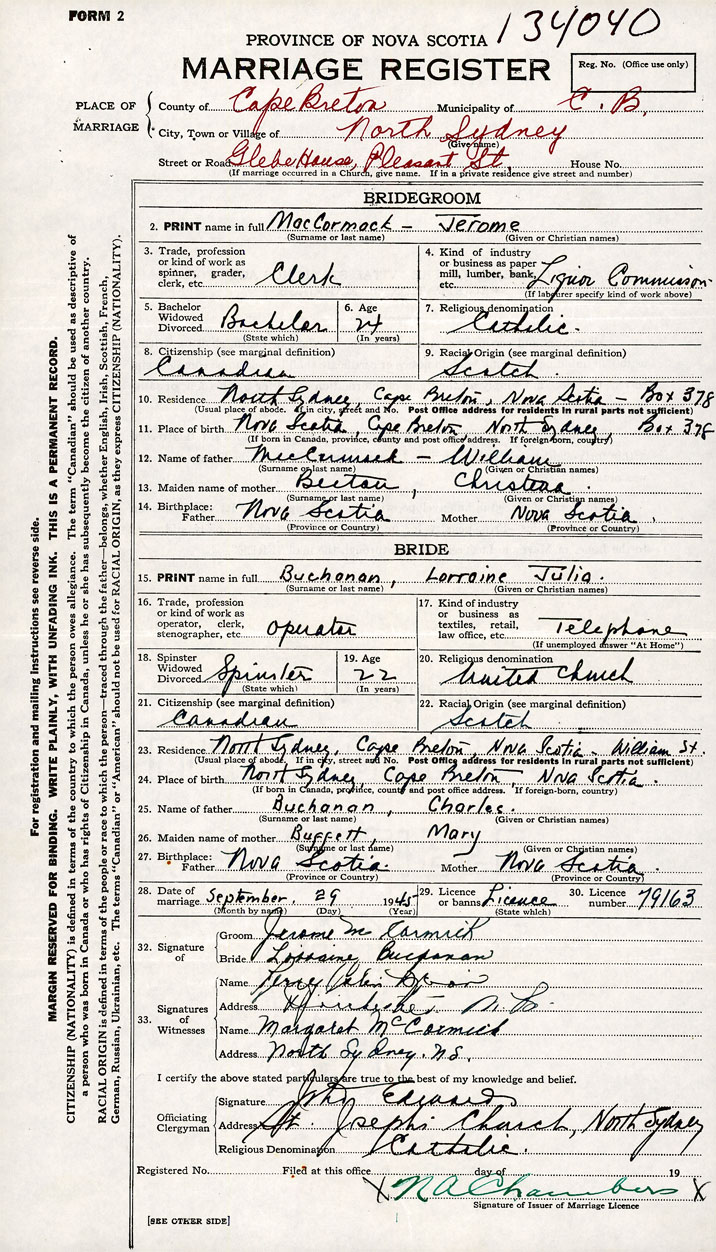 FORM 2
134040
PROVINCE OF NOVA SCOTIA
MARRIAGE REGISTER
Reg. No. (Office use only)
PLACE OF MARRIAGE
County of Cape Breton Municipality of C. B.
City, Town or Village of North Sydney
(Give name)
Street or Road Glebe House, Pleasant St. House No.
(If marriage occurred in a Church, give name. If in a private residence give street and number)
BRIDEGROOM
2. PRINT name in full MacCormack - Jerome
(Surname or last name) (Given or Christian names)
3. Trade, profession or kind of work as spinner, grader, clerk, etc. Clerk
4. Kind of industry or business as paper mill, lumber, bank, etc. Liquor Commisson
(If labourer specify kind of work above)
5. Bachelor Widowed Divorced Bachelor
(State which)
6. Age 24
(In years)
7. Religious denomination Catholic.
8. Citizenship (see marginal definition) Canadian
9. Racial Origin (see marginal definition) Scotch.
10. Residence North Sydney, Cape Breton, Nova Scotia - Box 378
(Usual place of abode. If in city, street and No. Post Office address for residents in rural parts not sufficient)
11. Place of birth Nova Scotia, Cape Breton, North Sydney, Box 378
(If born in Canada, province, county and post office address. If foreign-born, country)
12. Name of father MacCormack - William
(Surname or last name) (Given or Christian names)
13. Maiden name of mother Beaton, Christena
(Surname or last name) (Given or Christian names)
14. Birthplace: Father Nova Scotia Mother Nova Scotia.
(Province or Country) (Province or Country)
BRIDE
15. PRINT name in full Buchanan, Lorraine Julia.
(Surname or last name) (Given or Christian names)
16. Trade, profession or kind of work as operator, clerk, stenographer, etc. operator
17. Kind of industry or business as textiles, retail, law office, etc. Telephone
(If unemployed answer "At Home")
18. Spinster Widowed Divorced Spinster
(State which)
19. Age 22
(In years)
20. Religious denomination United Church
21. Citizenship (see marginal definition) Canadian
22. Racial Origin (see marginal definition) Scotch
23. Residence North Sydney, Cape Breton, Nova Scotia - William St.
(Usual place of abode. If in city, street and No. Post Office address for residents in rural parts not sufficient)
24. Place of birth North Sydney Cape Breton, Nova Scotia.
(If born in Canada, province, county and post office address. If foreign-born, country)
25. Name of father Buchanan, Charles.
(Surname or last name) (Given or Christian names)
26. Maiden name of mother Buffett, Mary
(Surname or last name) (Given or Christian names)
27. Birthplace: Father Nova Scotia. Mother Nova Scotia.
(Province or Country) (Province or Country)
28. Date of marriage September 29 1945
(Month by name) (Day) (Year)
29. Licence or banns Licence
(State which)
30. Licence number 79163
32. Signature of
Groom Jerome McCormick
Bride Lorraine Buchanan
33. Signatures of Witnesses
Name
Address
Name Margaret McCormick
Address North Sydney. N.S.
I certify the above stated particulars are true to the best of my knowledge and belief.
Officiating Clergyman
Signature John Edwards
Address St. Joseph's Church, North Sydney
Religious Denomination Catholic.
Registered No. Filed at this office day of 19
X N A Chambers X
Signature of Issuer of Marriage Licence
[SEE OTHER SIDE]
For registration and mailing instructions see reverse side.
MARGIN RESERVED FOR BINDING. WRITE PLAINLY, WITH UNFADING INK. THIS IS A PERMANENT RECORD.
CITIZENSHIP (NATIONALITY) is defined in terms of the country to which the person owes allegiance. The term "Canadian" should be used as descriptive of
a person who was born in Canada or who has rights of Citizenship in Canada, unless he or she has subsequently become the citizen of another country.
RACIAL ORIGIN is defined in terms of the people or race to which the person—traced through the father—belongs, whether English, Irish, Scottish, French,
German, Russian, Ukrainian, etc. The terms "Canadian" or "American" should not be used for RACIAL ORIGIN, as they express CITIZENSHIP (NATIONALITY).